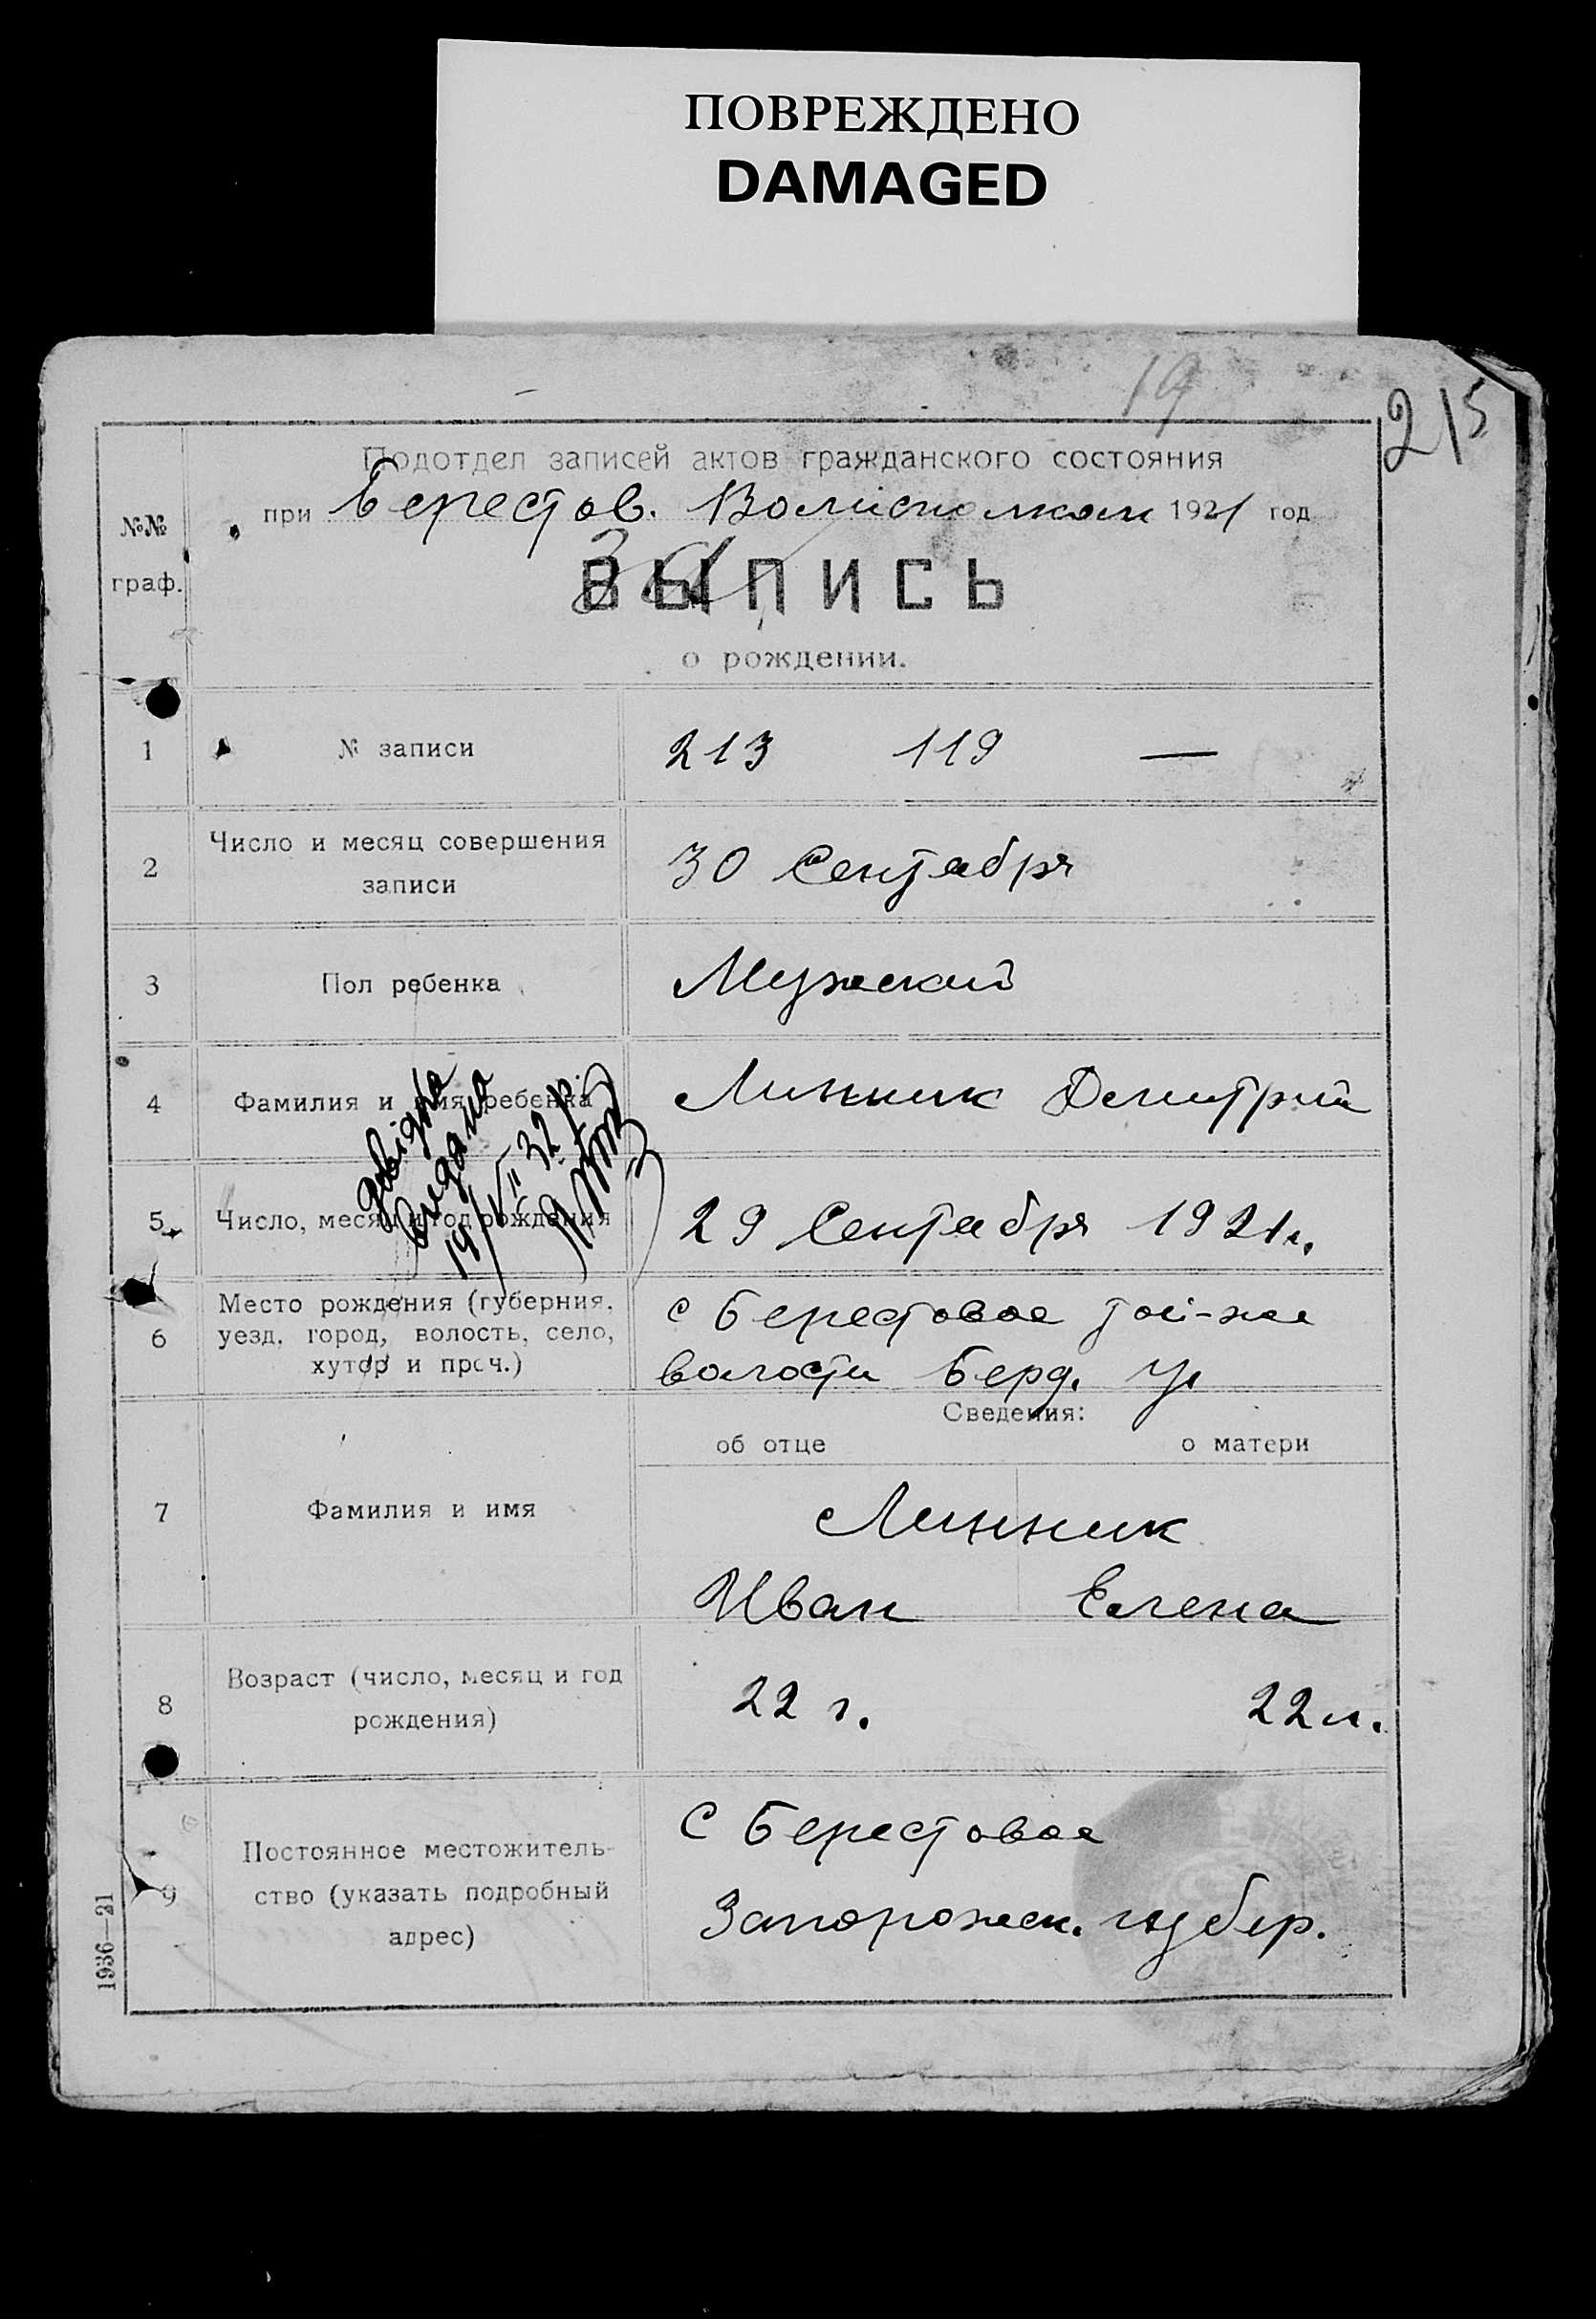 ПОВРЕЖДЕНО
DAMAGED
19
215
Подотдел записей актов гражданского состояния
при Берестов. Волисполком 1921 год
№№
граф.
ВЫПИСЬ
о рождении.
1 № записи 213 119 —
2 Число и месяц совершения
записи
30 Сентября
3 Пол ребенка Мужской
4 Фамилия и имя ребенка Линник Дмитрий
довідка
видана
5 Число, месяц и год рождения 29 Сентября 1921 г.
6 Место рождения (губерния,
уезд, город, волость, село,
хутор и проч.)
с Берестовое той-же
волости Берд. у.
Сведения:
об отце о матери
7 Фамилия и имя
Линник
Иван Елена
8 Возраст (число, месяц и год
рождения)
22 г. 22 л.
9 Постоянное местожитель-
ство (указать подробный
адрес)
С Берестовое
Запорожск. губер.
1936—21